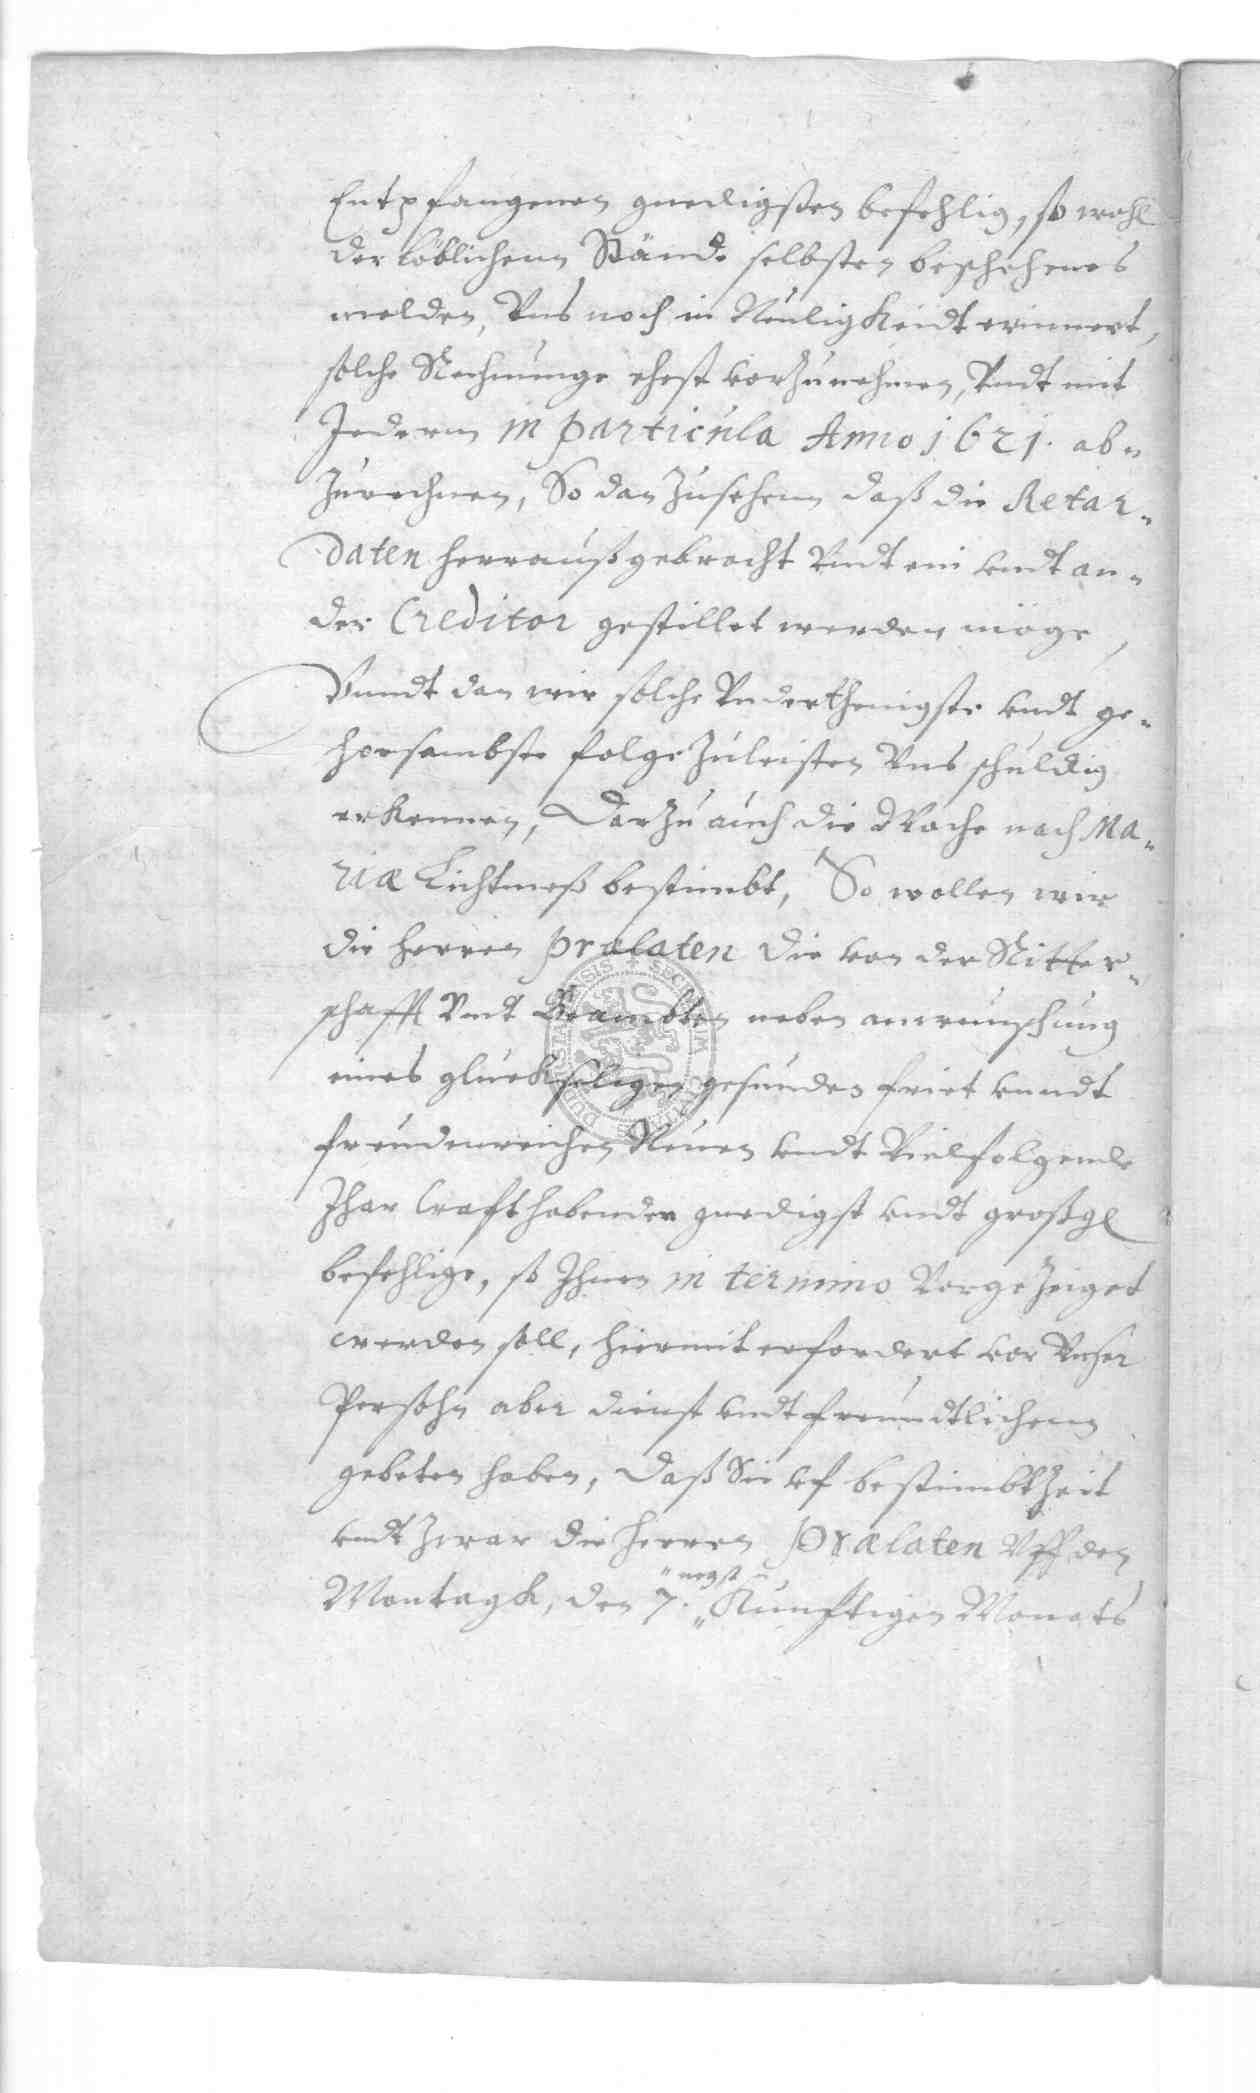 Entpfangenen gnedigsten befehlig, so wohl
der löblichenn Stände selbsten beschehenes
melden, Vns noch in Neuligkeidt erinnert,
solche Rechnunge ehest vorzunehmen, Vndt mit
Jederm in particula Anno 1621. ab„
zurechnen, So dan zusehenn daß die Retar„
daten herraußgebracht Vndt ein vndt an„
der Creditor gestillet werden möge,
Vnndt dan wir solche Vnderthenigste vndt ge„
horsambste folge zuleisten Vns schuldig
erkennen, Darzu auch die Woche nach Ma„
riæ Lichtmeß bestimbt, So wollen wir
die herren prælaten die von der Ritter„
schafft Vndt Beambten neben anwunschung
eines glückseligen gesunden friet vnndt
freudenreichen Neuen vndt Vielfolgende
Jhar Crafft habender gnedigst vndt großgl
befehlige, so Jhnen in termino Vorgezeiget
werden soll, hiermit erfordert vor Vnser
Persohn aber dienst vndt freundtlichenn
gebeten haben, Daß Sie vf bestimbtZeit
vndt zwar die herren Prælaten Vff den
„negst„
Montagk, den 7. „Kunftigen Monats
SECRETUM CIVITATIS DUDERSTADENSIS